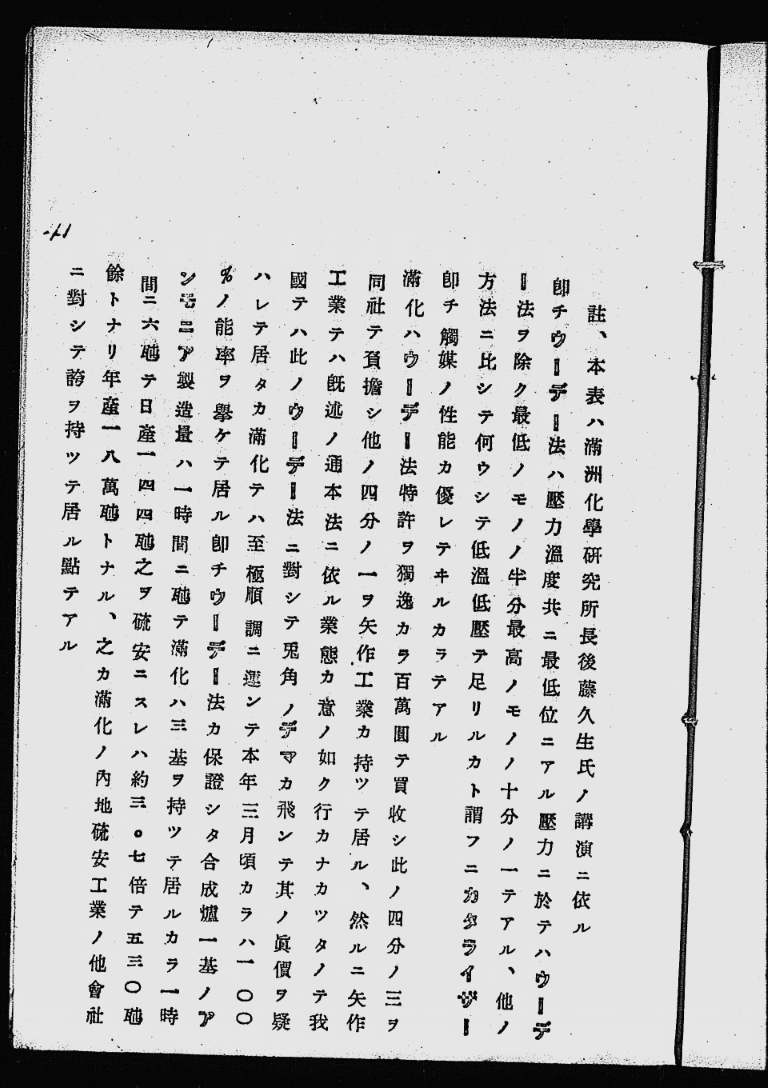 註、本表ハ滿洲化學研究所長後藤久生氏ノ講演ニ依ル
卽チウーデー法ハ壓力溫度共ニ最低位ニアル壓力ニ於テハウーデ
ー法ヲ除ク最低ノモノノ半分最高ノモノノ十分ノ一テアル、他ノ
方法ニ比シテ何ウシテ低溫低壓テ足リルカト謂フニカタライザー
卽チ觸媒ノ性能カ優レテヰルカラテアル
滿化ハウーデー法特許ヲ獨逸カラ百萬圓テ買收シ此ノ四分ノ三ヲ
同社テ負擔シ他ノ四分ノ一ヲ矢作工業カ持ツテ居ル、然ルニ矢作
工業テハ旣述ノ通本法ニ依ル業態カ意ノ如ク行カナカツタノテ我
國テハ此ノウーデー法ニ對シテ兎角ノデマカ飛ンテ其ノ眞價ヲ疑
ハレテ居タカ滿化テハ至極順調ニ運ンテ本年三月頃カラハ一〇〇
%ノ能率ヲ擧ケテ居ル卽チウーデー法カ保證シタ合成爐一基ノア
ンモニア製造量ハ一時間ニ瓲テ滿化ハ三基ヲ持ツテ居ルカラ一時
間ニ六瓲テ日產一四四瓲之ヲ硫安ニスレハ約三。七倍テ五三〇瓲
餘トナリ年產一八萬瓲トナル、之カ滿化ノ內地硫安工業ノ他會社
ニ對シテ誇ヲ持ツテ居ル點テアル